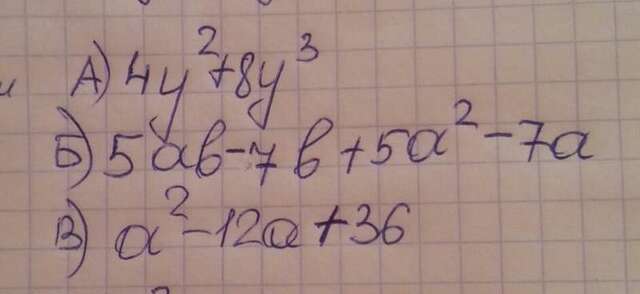 А) 4y²+8y³
Б) 5ab-7b+5a²-7a
В) a²-12a+36